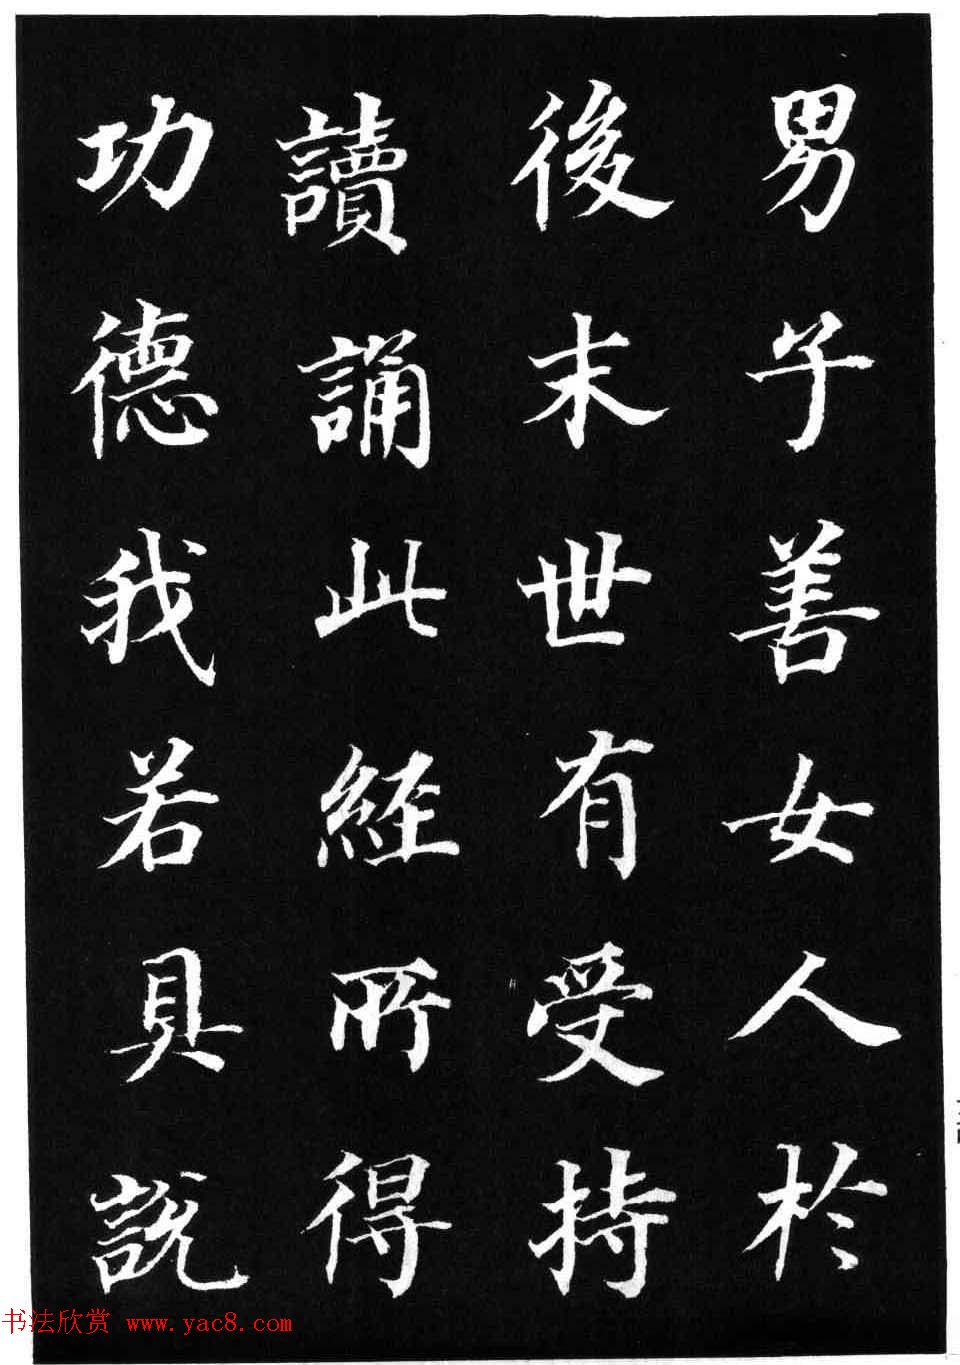 男子善女人於
後末世有受持
讀誦此經所得
功德我若具說
书法欣赏 www.yac8.com